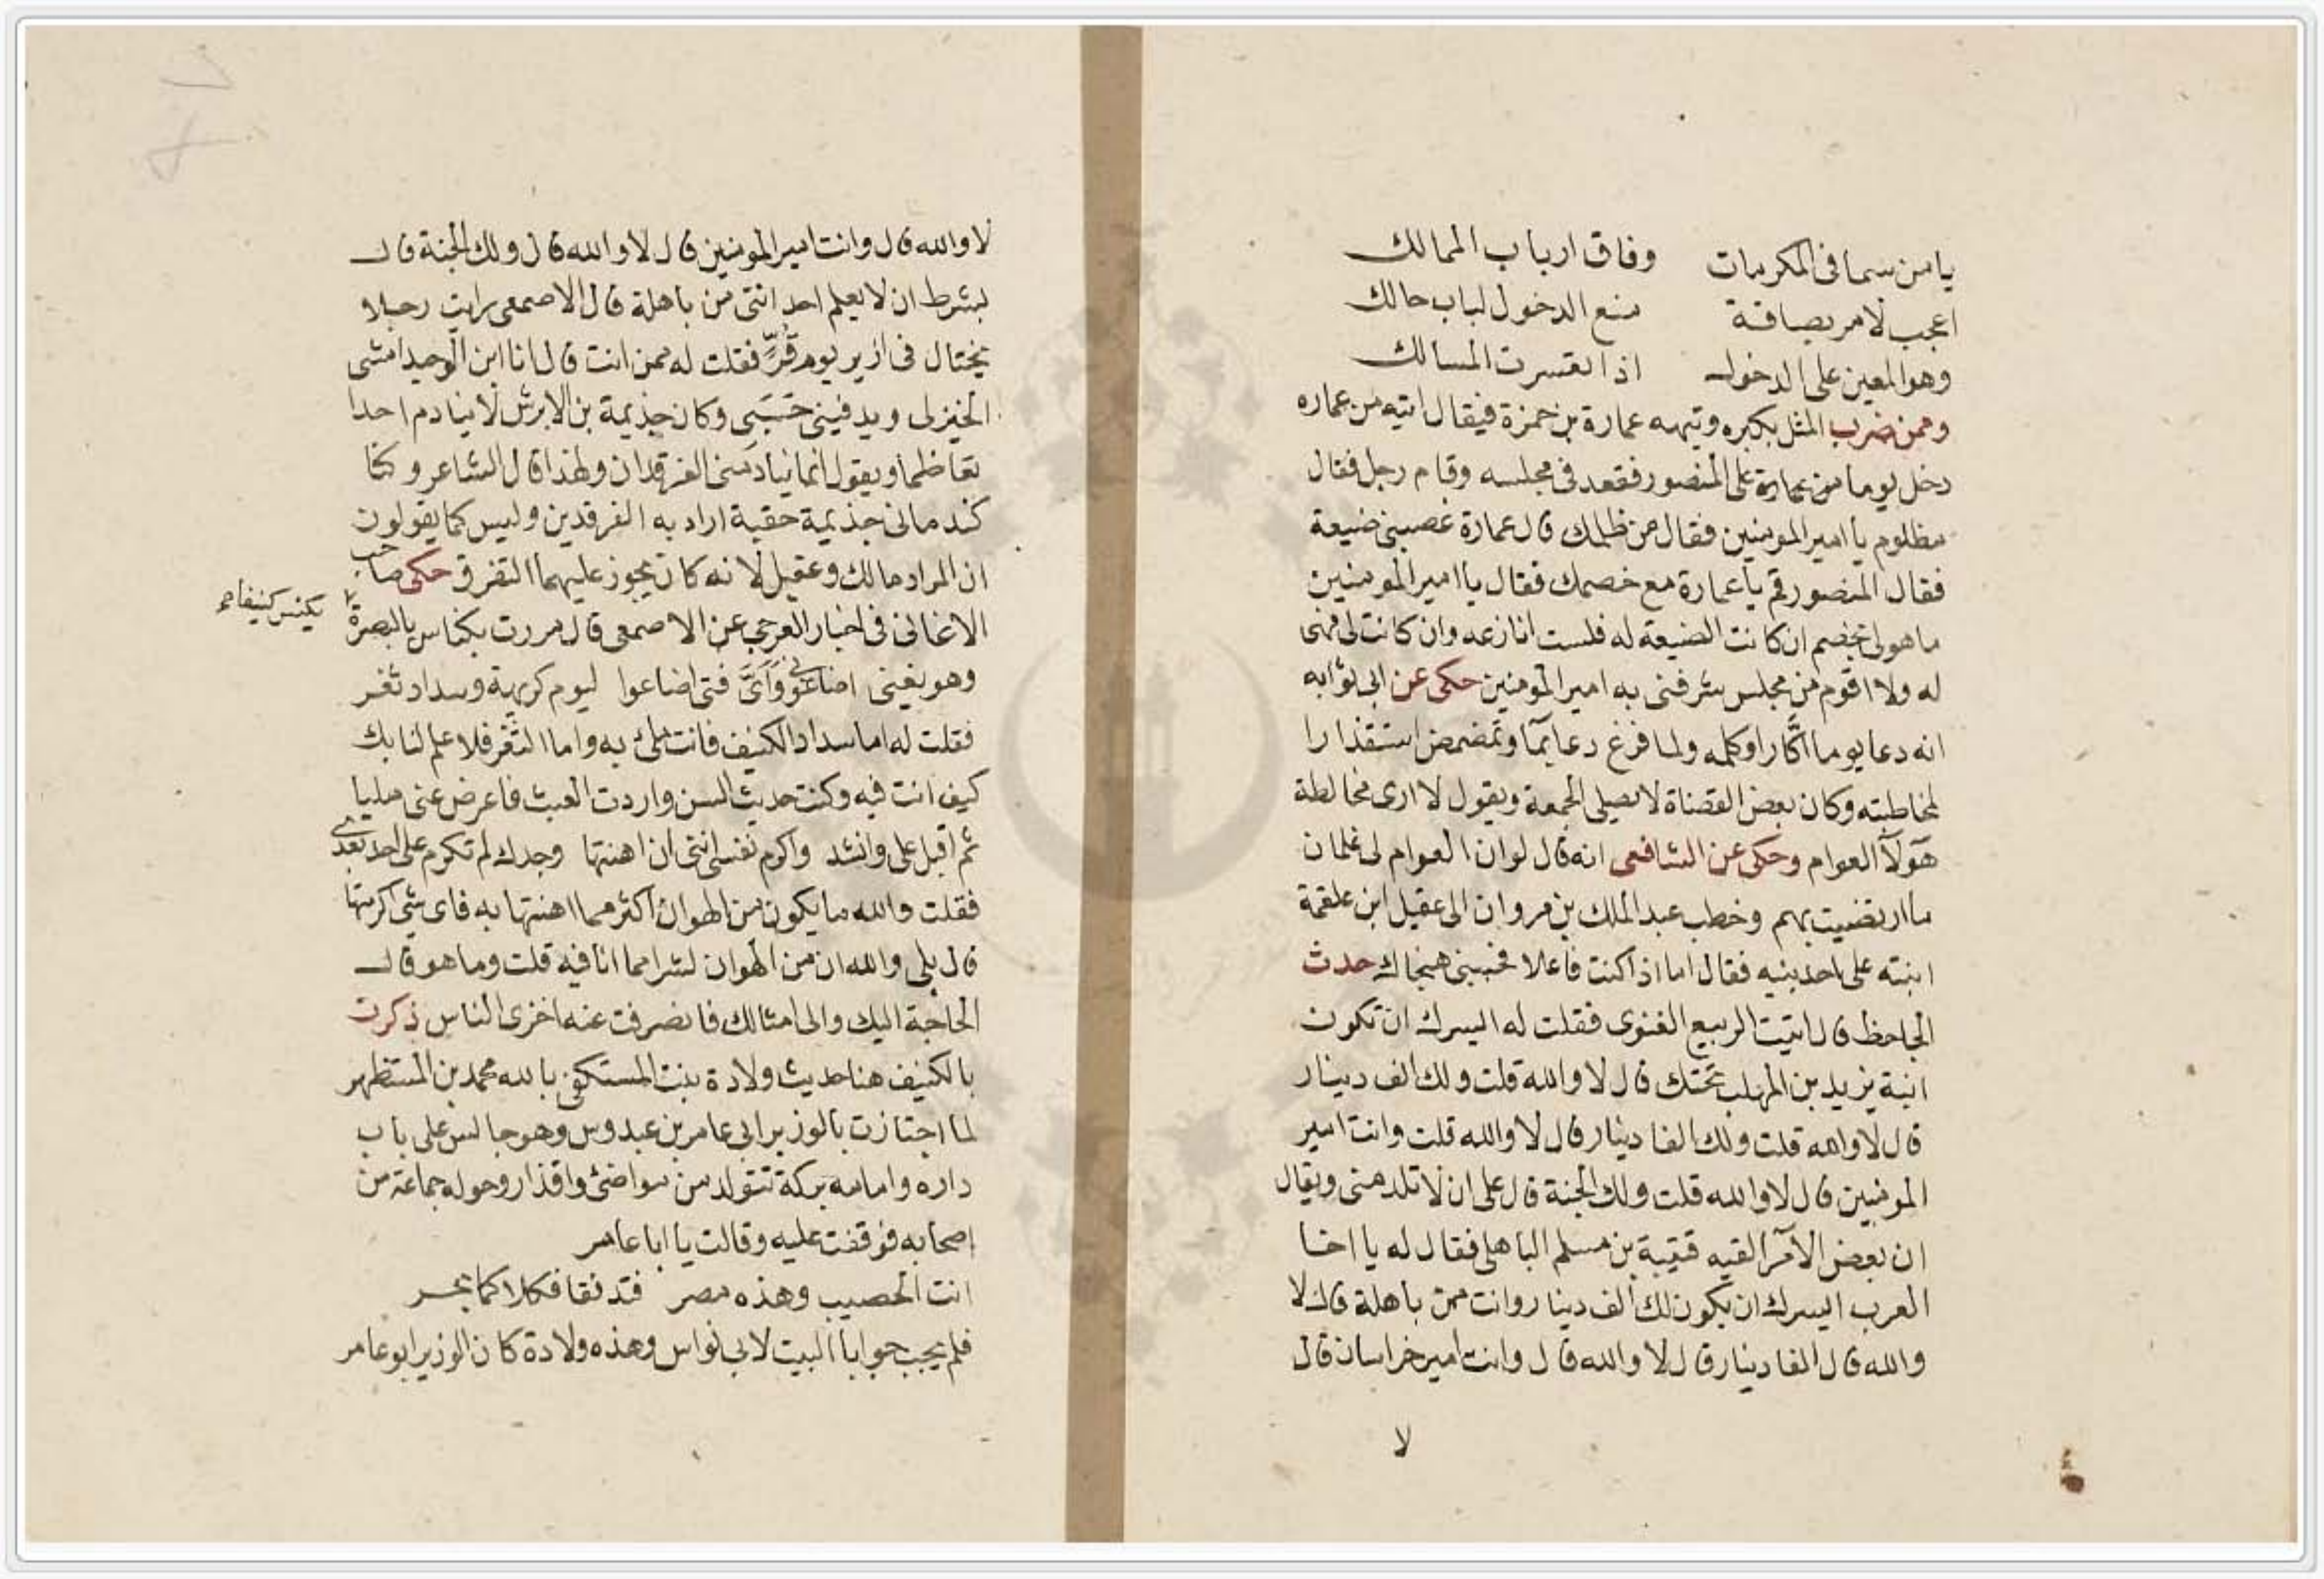 يامن سما فى المكرمات وفاق ارباب الممالك
اعجب لامر بصافة منع الدخول لباب حالك
وهو المعين على الدخول اذا تعسرت المسالك
وممن ضرب المثل بكبره وتيهه عمارة بن حمزة فيقال اتيه من عماره
دخل يوما من عمارة على المنصور فقعد فى مجلسه وقام رجل فقال
مظلوم يا امير المومنين فقال من ظلمك قال عمارة غصبنى ضيعة
فقال المنصور قم يا عمارة مع خصمك فقال يا امير المومنين
ما هو لى بخصم ان كانت الضيعة له فلست انازعه وان كانت لى فهى
له ولا اقوم من مجلس شرفنى به امير المومنين حكى عن ابى ثوابه
انه دعا يوما اكّارا وكلمه ولما فرغ دعا بمآ وتمضمض استقذارا
لمخاطبته وكان بعض القضاة لا يصلى الجمعة ويقول لا ارى مخالطة
هولآ العوام وحكى عن الشافعى انه قال لو ان العوام لى غلمان
ما ارتضيت بهم وخطب عبد الملك بن مروان الى عقيل ابن علقمة
ابنته على احد بنيه فقال اما اذا كنت فاعلا فجنبنى هجناك حدث
الجاحظ قال اتيت الربيع الغنوى فقلت له ايسرك ان تكون
ابنة يزيد بن المهلب تحتك قال لا والله قلت ولك الف دينار
قال لا والله قلت ولك الفا دينار قال لا والله قلت وانت امير
المومنين قال لا والله قلت ولك الجنة قال على ان لا تلد منى ويقال
ان بعض الامرآ لقيه قتيبة بن مسلم الباهلى فقال له يا اخا
العرب ايسرك ان يكون لك الف دينار وانت من باهلة قال لا
والله قال الفا دينار قال لا والله قال وانت امير خراسان قال
لا
لا والله قال وانت امير المومنين قال لا والله قال ولك الجنة قال
بشرط ان لا يعلم احد اننى من باهلة قال الاصمعى رايت رجلا
يختال فى ازير يوم قُرٍّ فقلت له ممن انت قال انا ابن الوحيد امشى
الخيزلى ويدفينى حَسَبَى وكان جذيمة بن الابرش لا ينادم احدا
تعاظما ويقول انما ينادمنى الفرقدان ولهذا قال الشاعر وكنا
كندمانى جذيمة حقبة اراد به الفرقدين وليس كما يقولون
ان المراد مالك وعقيل لانه كان يجوز عليهما التفرق حكى صاحب
الاغانى فى اخبار العرجى عن الاصمعى قال مررت بكناس بالبصرة
يكنس كنيفا صح
وهو يغنى اضاعونى وَاَىَّ فتى اضاعوا ليوم كريهة وسداد ثغر
فقلت له اما سداد الكنيف فانت ملئ به واما الثَّغر فلا علم لنا بك
كيف انت فيه وكنت حديث السن واردت العبث فاعرض عنى مليا
ثم اقبل على وانشد واكرم نفسى اننى ان اهنتها وجدك لم تكرم على احد بعدى
فقلت والله ما يكون من الهوان اكثر مما اهنتها به فاى شى اكرمتها
قال بلى والله ان من الهوان لشرا مما انا فيه قلت وما هو قال
الحاجة اليك والى امثالك فانصرفت عنه اخزى الناس ذكرت
بالكنيف هنا حديث ولادة بنت المستكفى بالله محمد بن المستظهر
لما اجتازت بالوزير ابى عامر بن عبدوس وهو جالس على باب
داره وامامه بركة تتولد من مواضئ واقذار وحوله جماعة من
اصحابه فوقفت عليه وقالت يا ابا عامر
انت الخصيب وهذه مصر فتدفقا فكلا كما بحر
فلم يجب جوابا البيت لابى نواس وهذه ولادة كان الوزير ابو عامر